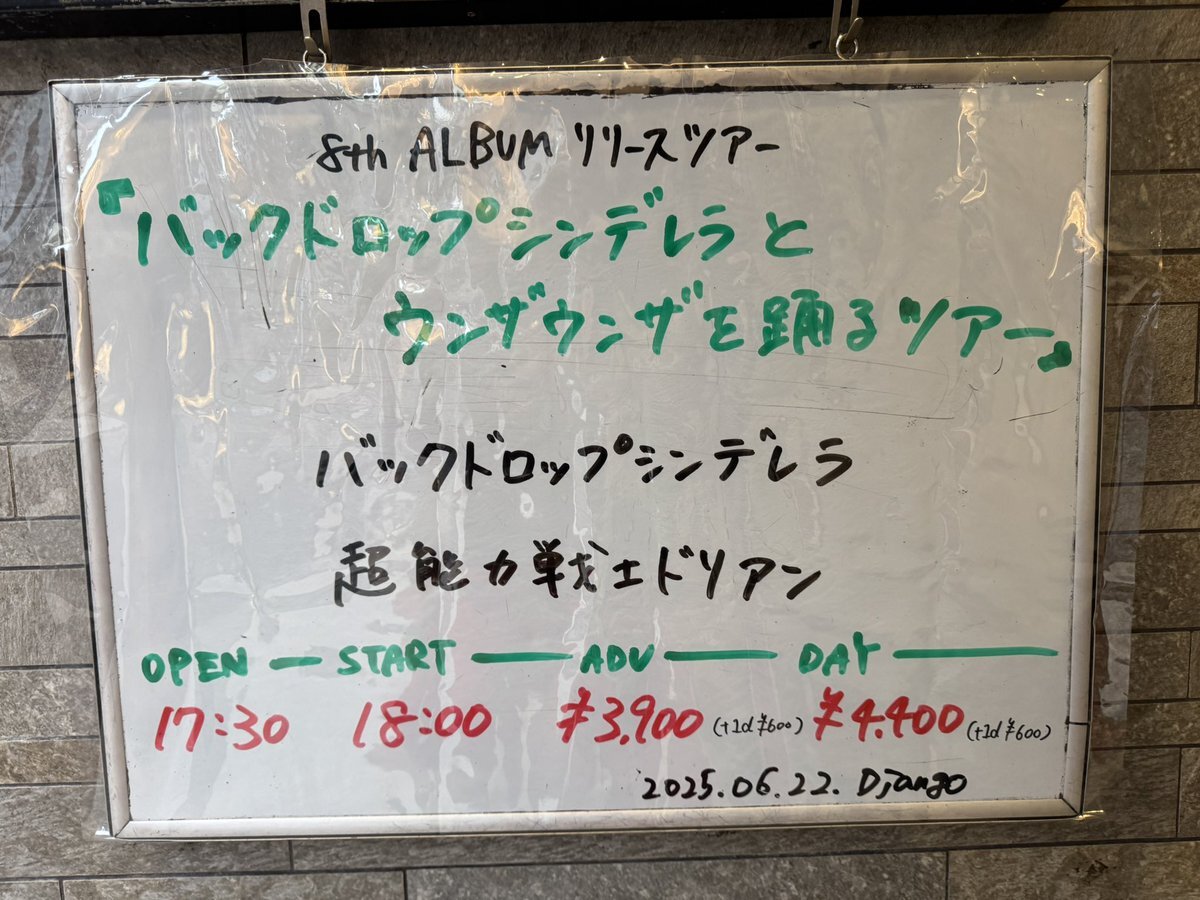 8th ALBUM リリースツアー
『バックドロップシンデレラと
ウンザウンザを踊るツアー』
バックドロップシンデレラ
超能力戦士ドリアン
OPEN — START — ADV — DAY —
17:30 18:00 ¥3,900 (+1d ¥600) ¥4,400 (+1d ¥600)
2025.06.22. Django